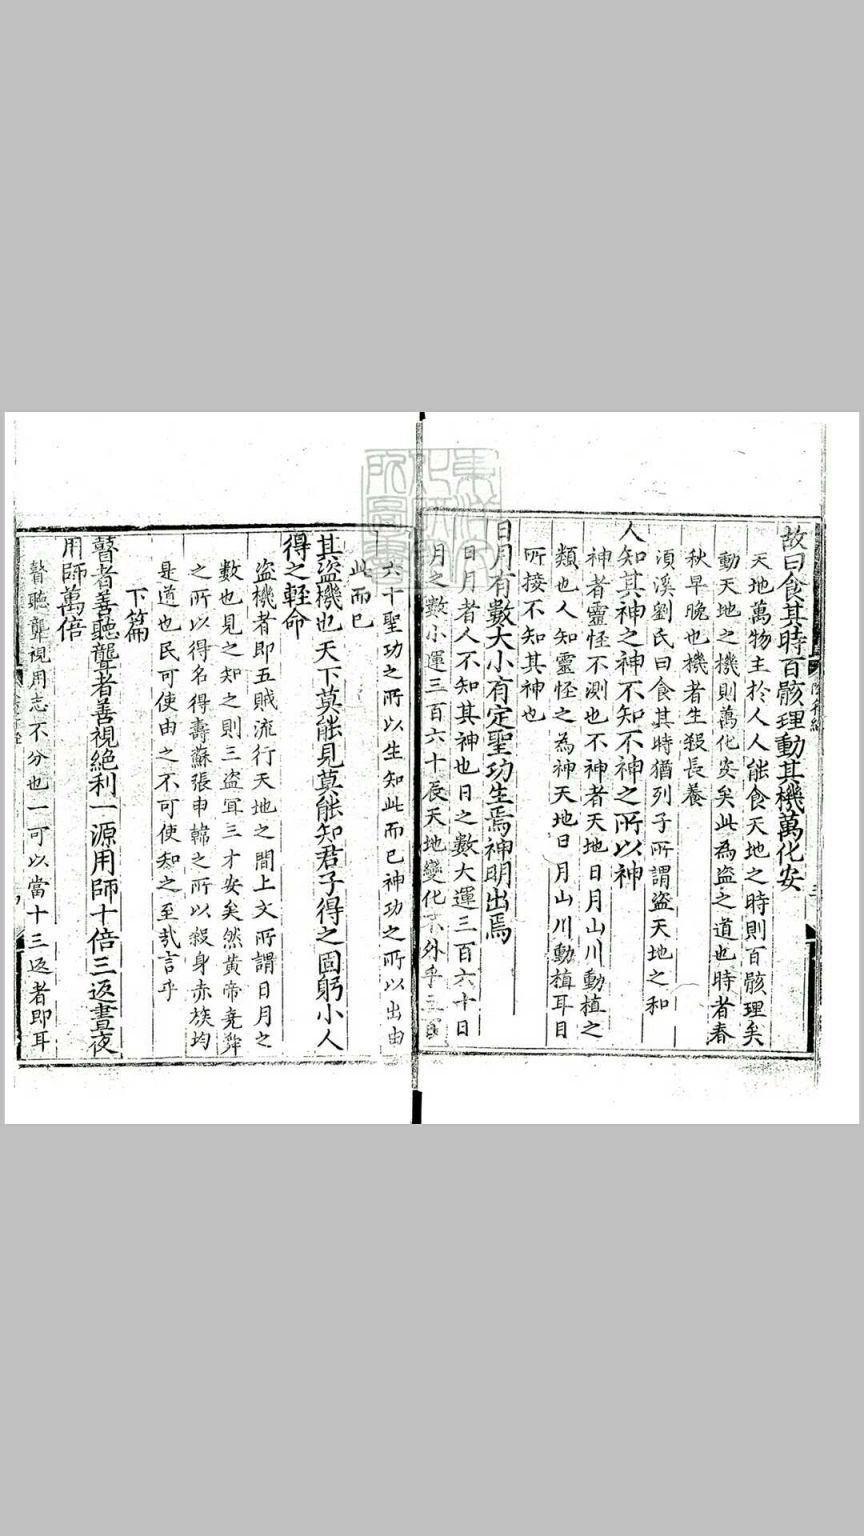 故曰食其時百骸理動其機萬化安
天地萬物主於人人能食天地之時則百骸理矣
動天地之機則萬化安矣此為盜之道也時者春
秋早晚也機者生殺長養
湏溪劉氏曰食其時猶列子所謂盜天地之和
人知其神之神不知不神之所以神
神者靈怪不測也不神者天地日月山川動植之
類也人知靈怪之為神天地日月山川動植耳目
所接不知其神也
日月有數大小有定聖功生焉神明出焉
日月者人不知其神也日之數大運三百六十日
月之數小運三百六十辰天地變化不外乎三百
六十聖功之所以生知此而已神功之所以出由
此而已
其盜機也天下莫能見莫能知君子得之固躬小人
得之輕命
盜機者即五賊流行天地之間上文所謂日月之
數也見之知之則三盜冝三才安矣然黃帝堯舜
之所以得名得壽蘇張申韓之所以殺身赤族均
是道也民可使由之不可使知之至㢤言乎
下篇
瞽者善聽聾者善視絶利一源用師十倍三返晝夜
用師萬倍
瞽聽聾視用志不分也一可以當十三返者即耳